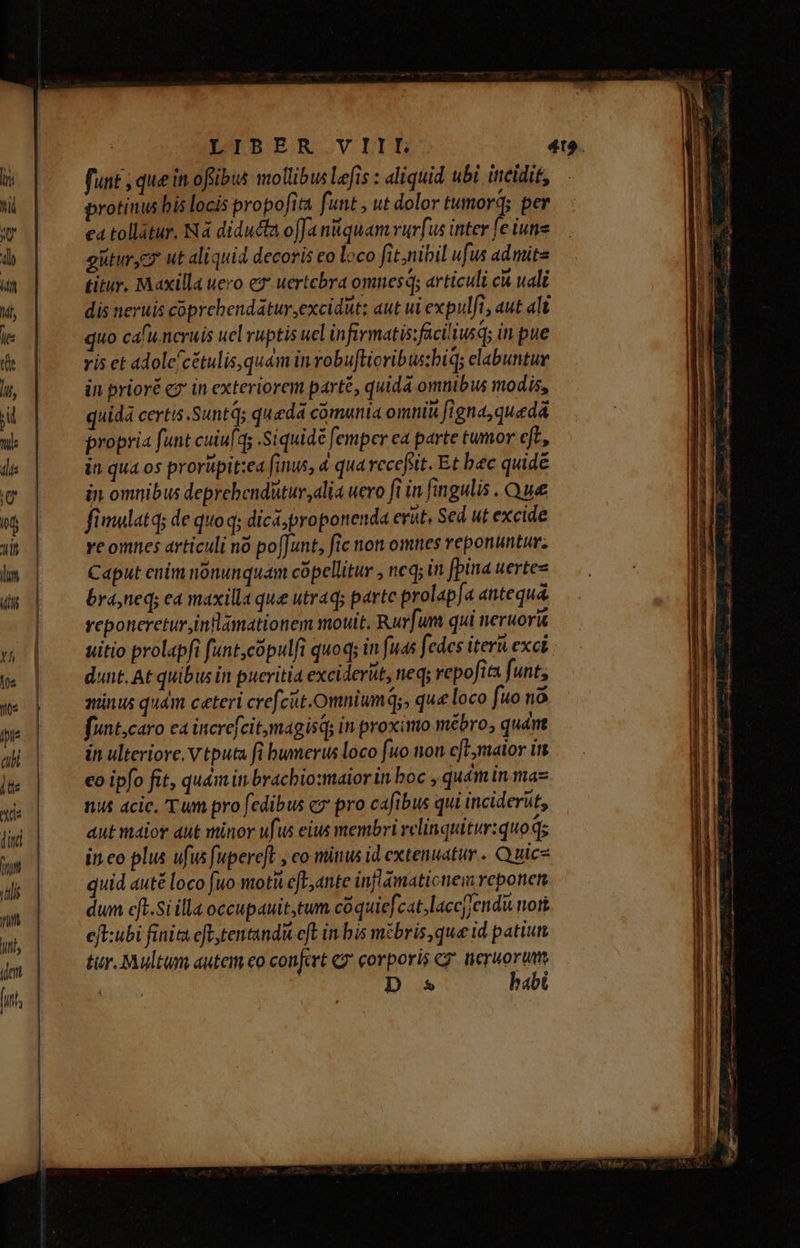 LIBER VIII. 419.
sunt, quæ in ossibus mollibus læsis: aliquid ubi incidit,
protinus his locis proposita sunt, ut dolor tumorq́; per
ea tollãtur. Nã diducta ossa nũquam rursus inter se iun=
gũtur, & ut aliquid decoris eo loco fit, nihil usus admit=
titur. Maxilla uero & uertebra omnesq́; articuli cũ uali
dis neruis cõprehendãtur, excidũt: aut ui expulsi, aut ali
quo casu neruis uel ruptis uel infirmatis: faciliusq́; in pue
ris et adolescẽtulis, quàm in robustioribus: hiq́; elabuntur
in priorẽ & in exteriorem partẽ, quidã omnibus modis,
quidã certis. Suntq́; quædã cõmunia omniũ signa, quædã
propria sunt cuiusq́;. Siquidẽ semper ea parte tumor est,
in qua os prorũpit: ea sinus, à qua recessit. Et hæc quidẽ
in omnibus deprehendũtur, alia uero si in singulis. Quæ
simulatq; de quoq; dicã, proponenda erũt. Sed ut excide
re omnes articuli nõ possunt, sic non omnes reponuntur.
Caput enim nõnunquam cõpellitur, neq; in spina uerte=
bra, neq; ea maxilla quæ utraq; parte prolapsa antequã
reponeretur, inflãmationem mouit. Rursum qui neruorũ
uitio prolapsi sunt, cõpulsi quoq; in suas sedes iterũ exci
dunt. At quibus in pueritia exciderũt, neq; reposita sunt,
minus quàm cæteri crescũt. Omniumq́;, quæ loco suo nõ
sunt, caro ea increscit, magisq́; in proximo mẽbro, quàm
in ulteriore. Vtputa si humerus loco suo non est, maior in
eo ipso fit, quàm in brachio: maior in hoc, quàm in ma=
nus acie. Tum pro sedibus & pro casibus qui inciderũt,
aut maior aut minor usus eius membri relinquitur: quoq́;
in eo plus usus superest, eo minus id extenuatur. Quic=
quid autẽ loco suo motũ est, ante inflãmationem reponen
dum est. Si illa occupauit, tum cõquiescat, lacessendũ non
est: ubi finita est, tentandũ est in his mẽbris, quæ id patiun
tur. Multum autem eo confert & corporis & neruorum
D 5 habi